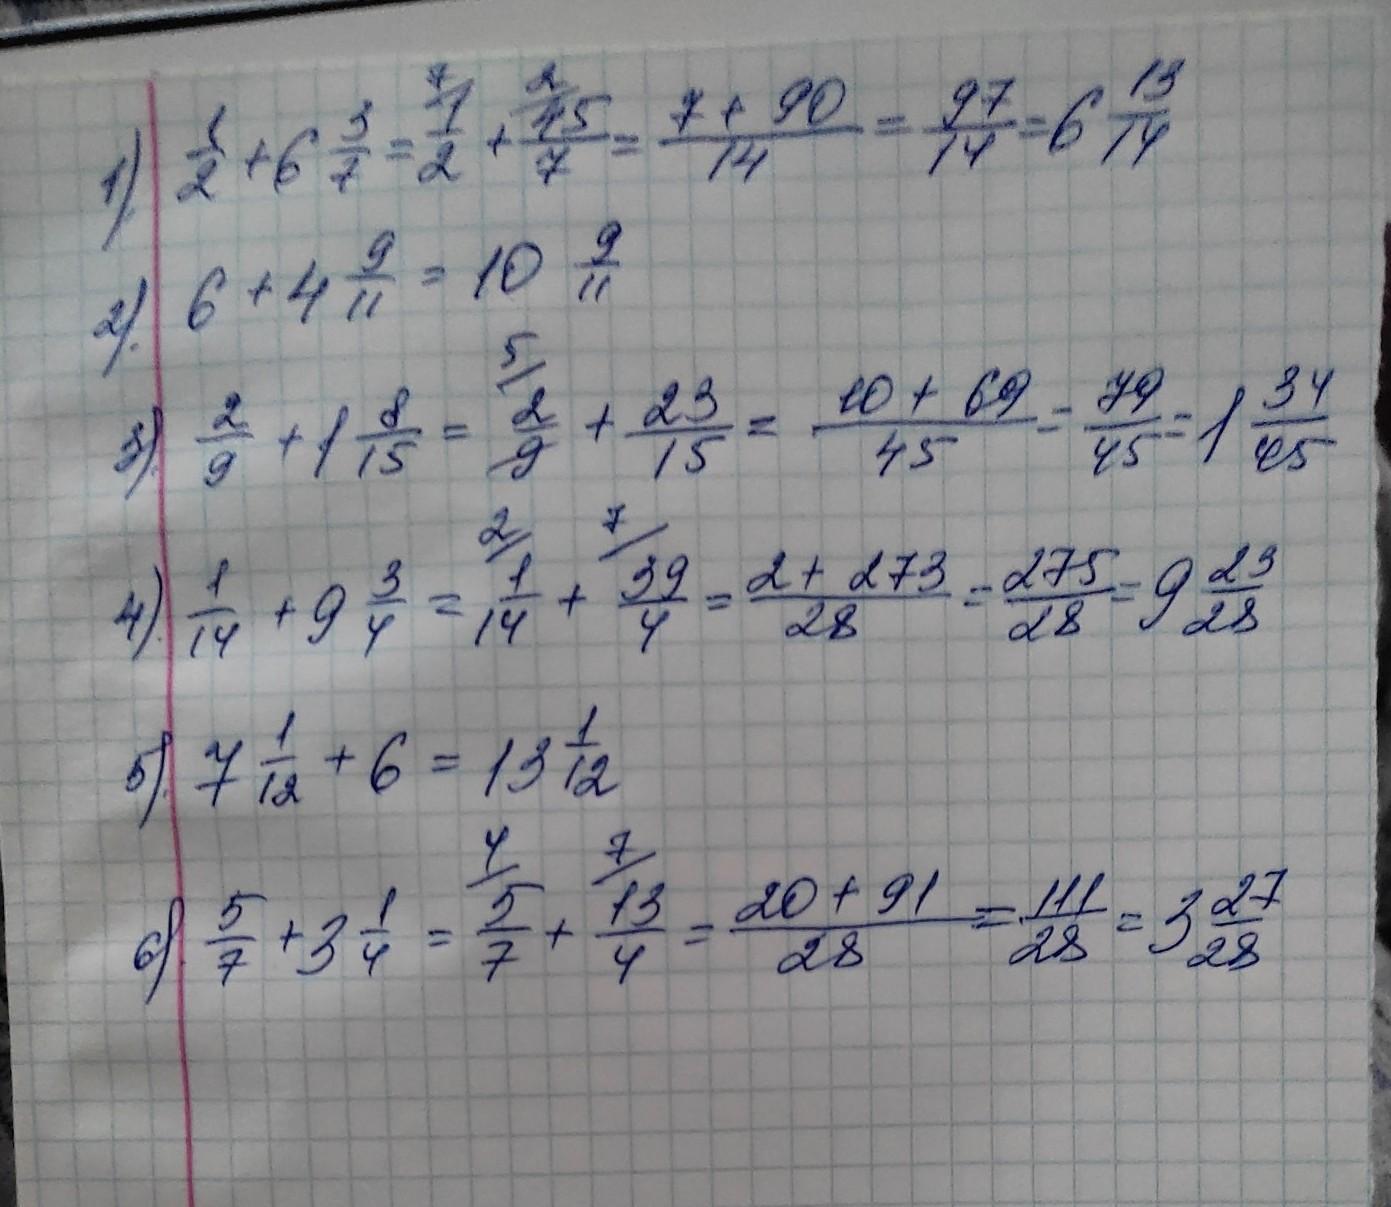 1). 1/2 + 6 3/7 = 7/ 1/2 + 2/ 45/7 = (7 + 90)/14 = 97/14 = 6 13/14
2). 6 + 4 9/11 = 10 9/11
3). 2/9 + 1 8/15 = 5/ 2/9 + 23/15 = (10 + 69)/45 = 79/45 = 1 34/45
4). 1/14 + 9 3/4 = 2/ 1/14 + 7/ 39/4 = (2 + 273)/28 = 275/28 = 9 23/28
5). 7 1/12 + 6 = 13 1/12
6). 5/7 + 3 1/4 = 4/ 5/7 + 7/ 13/4 = (20 + 91)/28 = 111/28 = 3 27/28